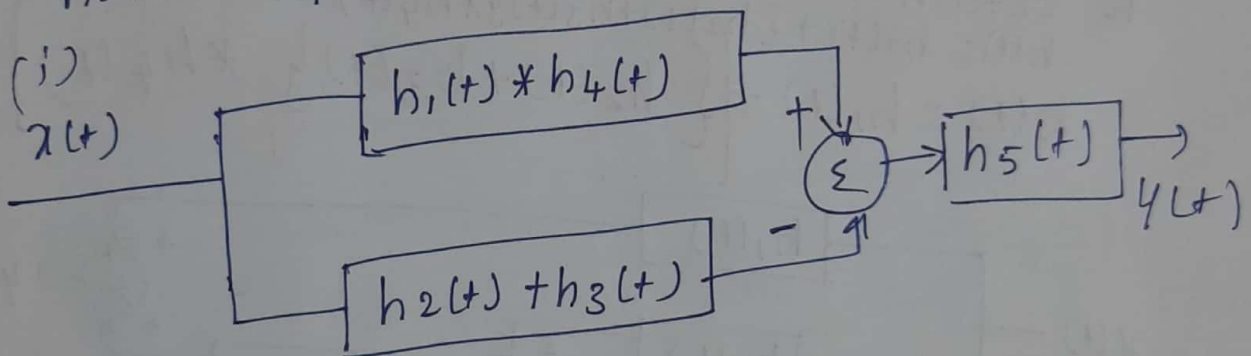 (i)
x(t)
h1(t) * h4(t)
+
Σ
h5(t)
y(t)
-
h2(t) + h3(t)